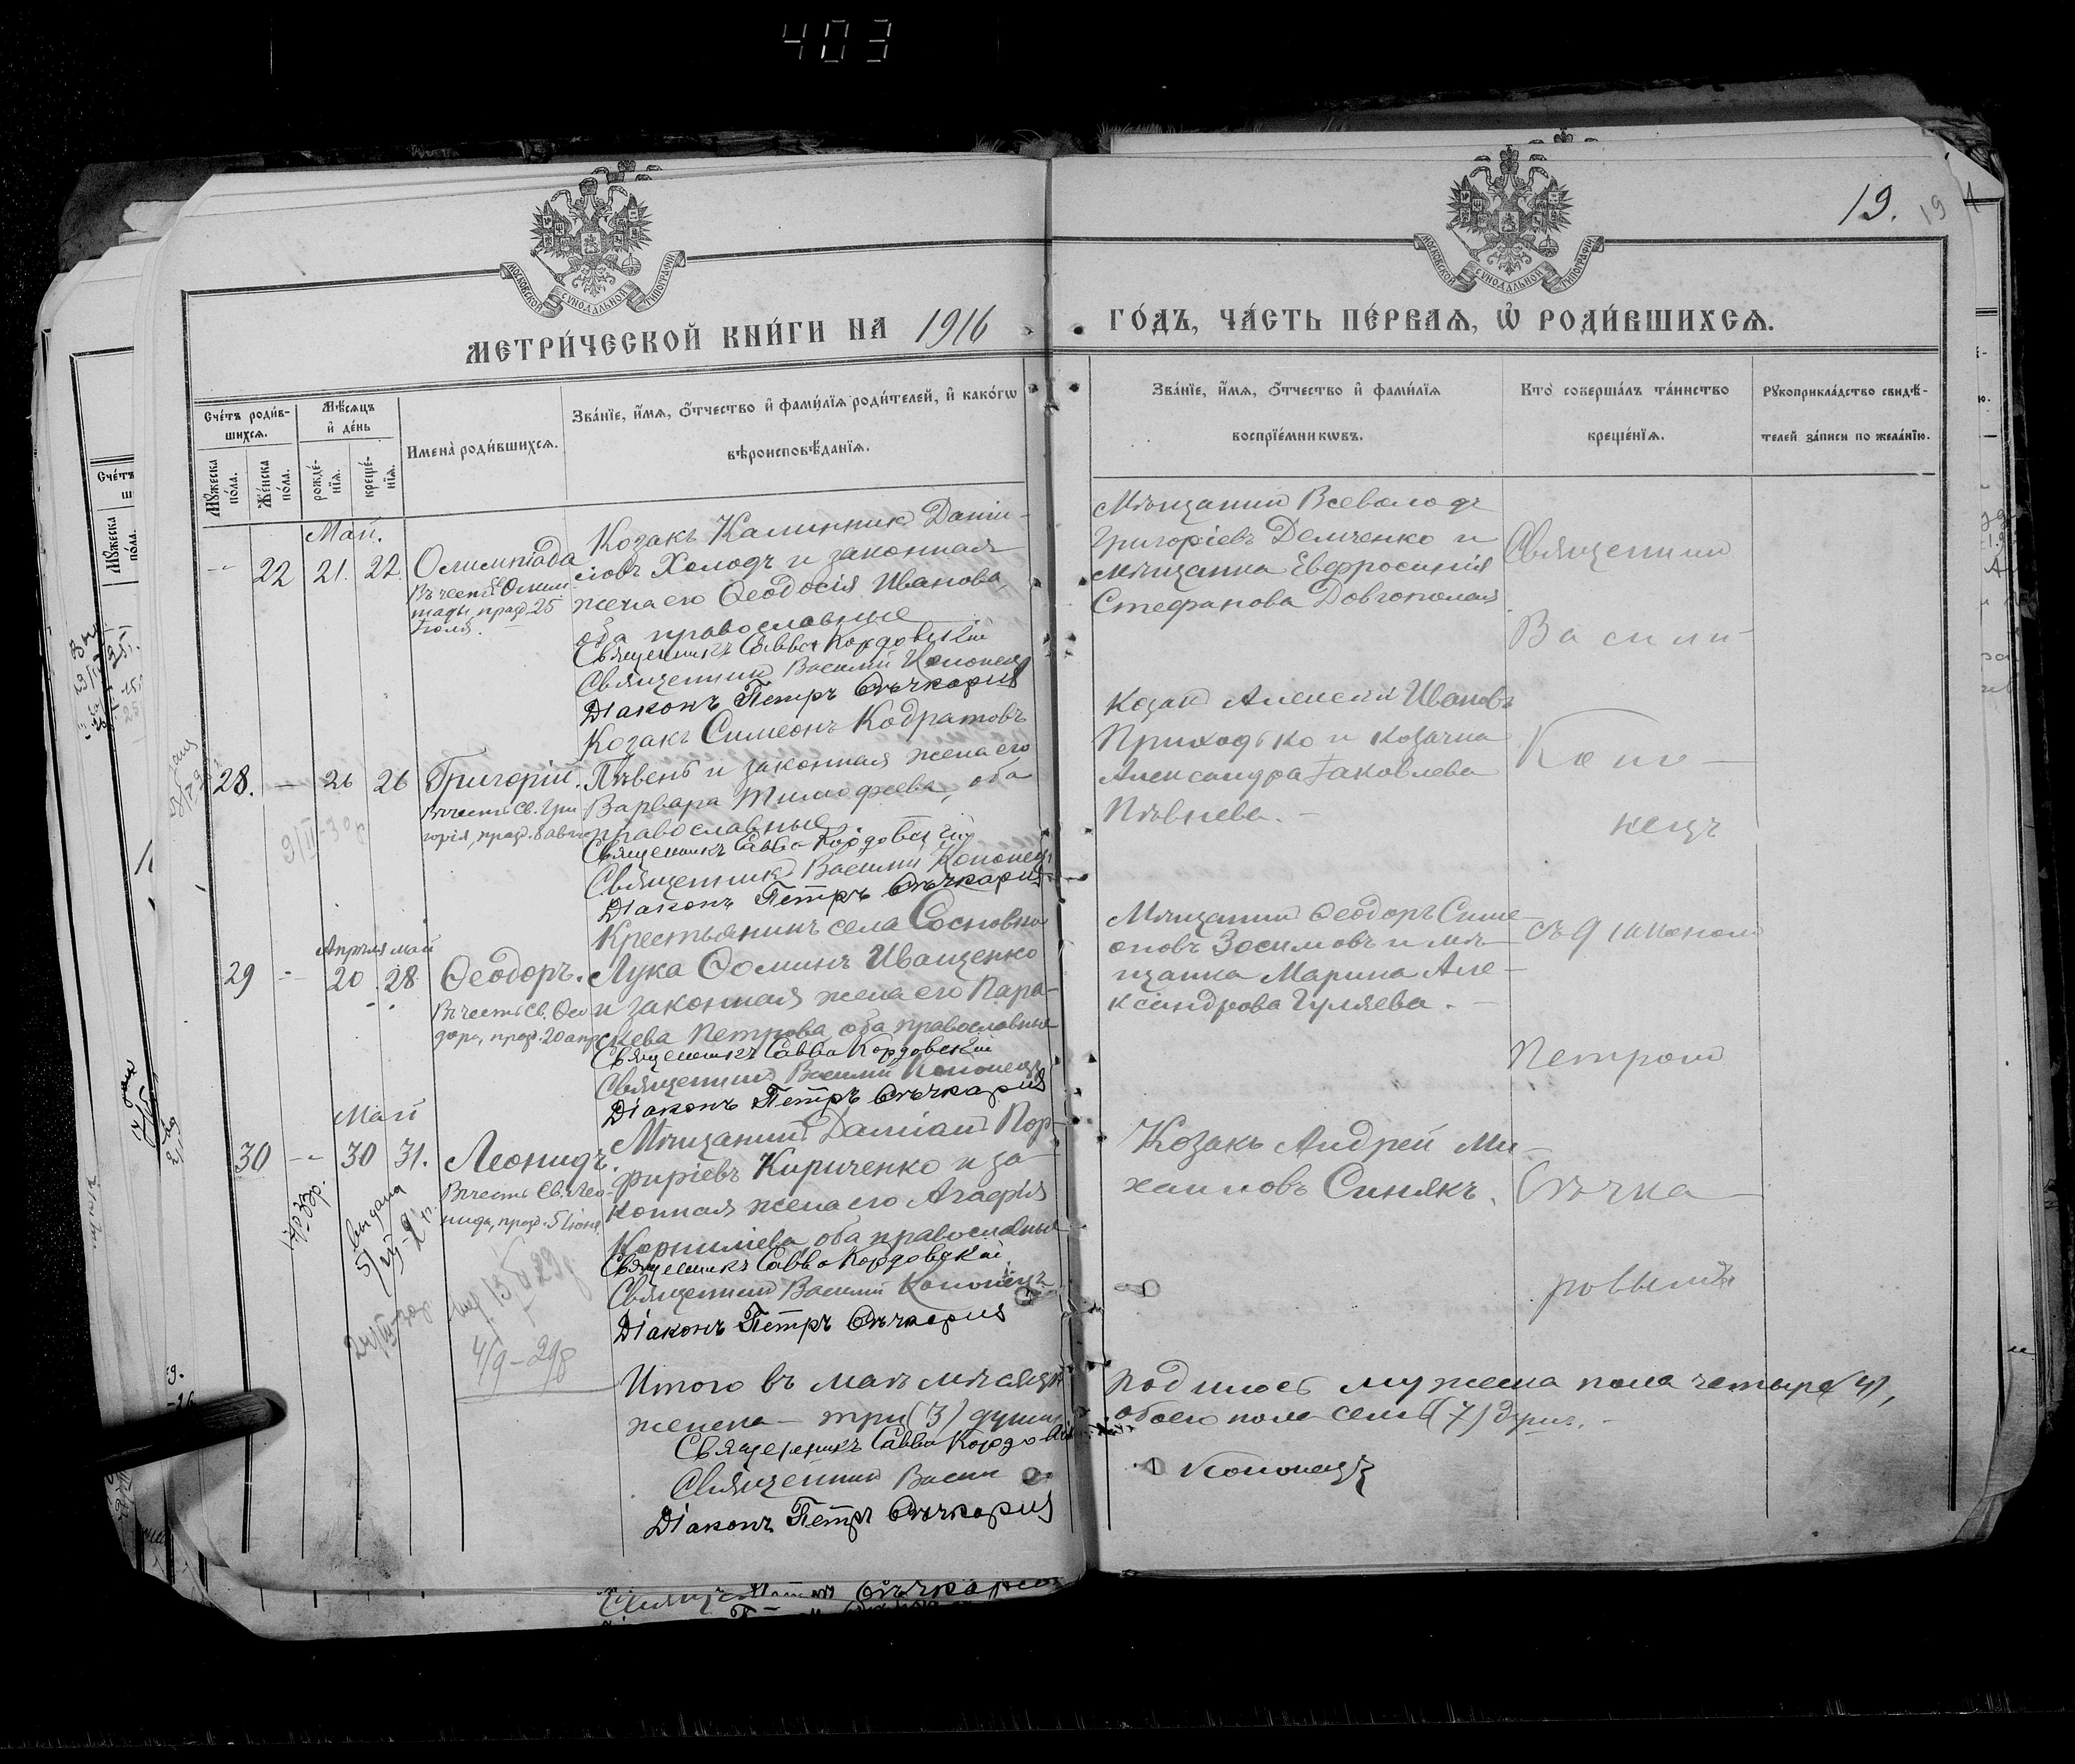 403
19.
19
МОСКОВСКОЙ СѴНОДАЛЬНОЙ ТИПОГРАФІИ
МОСКОВСКОЙ СѴНОДАЛЬНОЙ ТИПОГРАФІИ
МЕТРИ́ЧЕСКОЙ КНИ́ГИ НА 1916
ГО́ДЪ, ЧА́СТЬ ПЕ́РВАѦ, Ѡ҆ РОДИ́ВШИХСѦ.
Сче́тъ роди́в-
шихсѧ.
Мꙋ́жеска
по́ла.
Же́нска
по́ла.
Мѣ́сѧцъ
и҆ де́нь
рожде́-
нїѧ.
креще́-
нїѧ.
Имена̀ роди́вшихсѧ.
Зва́нїе, и҆́мѧ, ѻ҆́тчество и҆ фами́лїѧ роди́телей, и҆ како́гѡ
вѣроисповѣ́данїѧ.
Зва́нїе, и҆́мѧ, ѻ҆́тчество и҆ фами́лїѧ
воспрїе́мникѡвъ.
Кто̀ соверша́лъ та́инство
креще́нїѧ.
Рꙋкоприкла́дство свидѣ́-
телей за́писи по жела́нїю.
Май.
22 21. 22.
Олимпіада
Въ честь Св. Олим
піады, празд. 25
Іюля.
Козакъ Калинникъ Даніи-
ловъ Холодъ и законная
жена его Ѳеодосія Иванова,
оба православные
Священникъ Савва Кордовскій
Священникъ Василій Кононецъ
Діаконъ Петръ Сѣчкарня
Мѣщанинъ Всеволодъ
Григоріевъ Демченко и
мѣщанка Евфросинія
Стефанова Довгополая
Священникъ
Василій
Коно-
нецъ
съ діакономъ
Петромъ
Сѣчка-
28. — 26 26
Григорій.
Въ честь Св. Гри
горія, празд. 8 авг
Козакъ Симеонъ Кодратовъ
Пѣвень и законная жена его
Варвара Тимофеева, оба
православные
Священникъ Савва Кордовскій
Священникъ Василій Кононецъ
Діаконъ Петръ Сѣчкарня
Козакъ Алексій Ивановъ
Приходько и козачка
Александра Іаковлева
Пѣвнева. —
Апрѣля май
29 — 20 28
Ѳеодоръ.
Въ честь Св. Ѳео
дора, празд. 20 апр
Крестьянинъ села Сосновки
Лука Ѳоминъ Иващенко
и законная жена его Пара-
скева Петрова оба православные
Священникъ Савва Кордовскій
Священникъ Василій Кононецъ
Діаконъ Петръ Сѣчкарня
Мѣщанинъ Ѳеодоръ Симе-
оновъ Зосимовъ и мѣ-
щанка Марина Але-
ксандрова Гуляева. —
Май
30 — 30 31.
Леонидъ.
Въ честь Св. Лео-
нида, празд. 5 Іюня
Мѣщанинъ Даміанъ Пор-
фиріевъ Кириченко и за-
конная жена его Агафія
Корниліева, оба православные
Священникъ Савва Кордовскій
Священникъ Василій Кононецъ
Діаконъ Петръ Сѣчкарня
Козакъ Андрей Ми-
хаиловъ Синякъ.
4/9-29р
Итого въ маѣ мѣсяцѣ родилось мужеска пола четыре (4),
женска — три (3) души обоего пола семь (7) душъ. —
Священникъ Савва Кордовскій
Священникъ Василій Кононецъ
Діаконъ Петръ Сѣчкарня